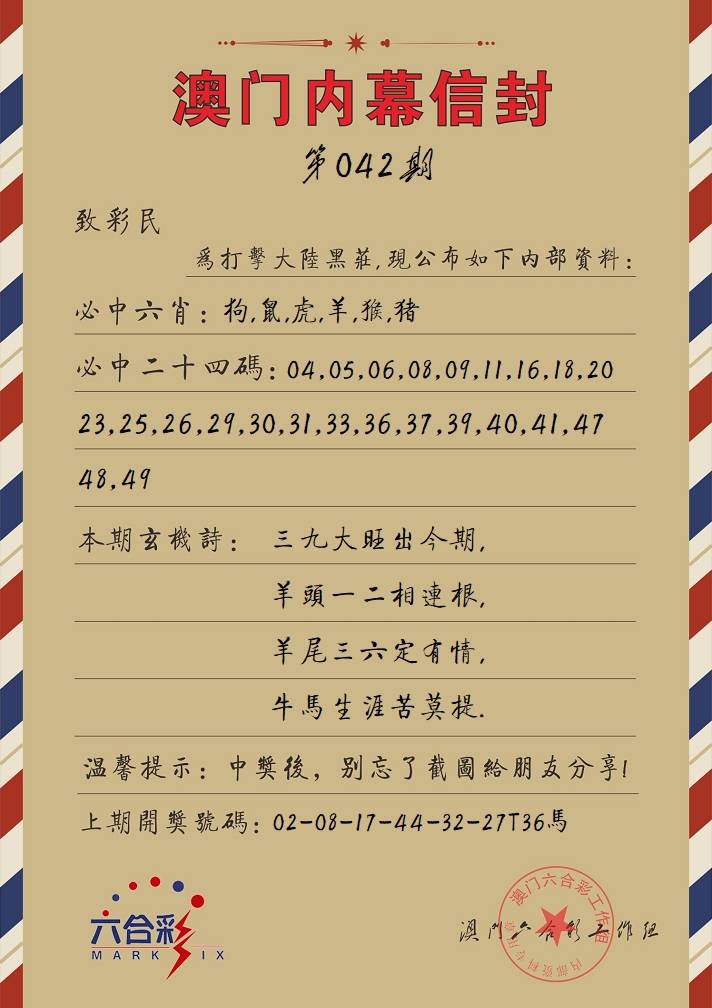 澳门内幕信封
第042期
致彩民
爲打擊大陸黑莊,現公布如下内部資料:
必中六肖:狗,鼠,虎,羊,猴,猪
必中二十四碼:04,05,06,08,09,11,16,18,20
23,25,26,29,30,31,33,36,37,39,40,41,47
48,49
本期玄機詩: 三九大旺出今期,
羊頭一二相連根,
羊尾三六定有情,
牛馬生涯苦莫提.
温馨提示:中獎後,别忘了截圖給朋友分享!
上期開獎號碼:02-08-17-44-32-27T36馬
六合彩
MARK SIX
澳门六合彩工作组
内部资料专用章
澳門六合彩工作組